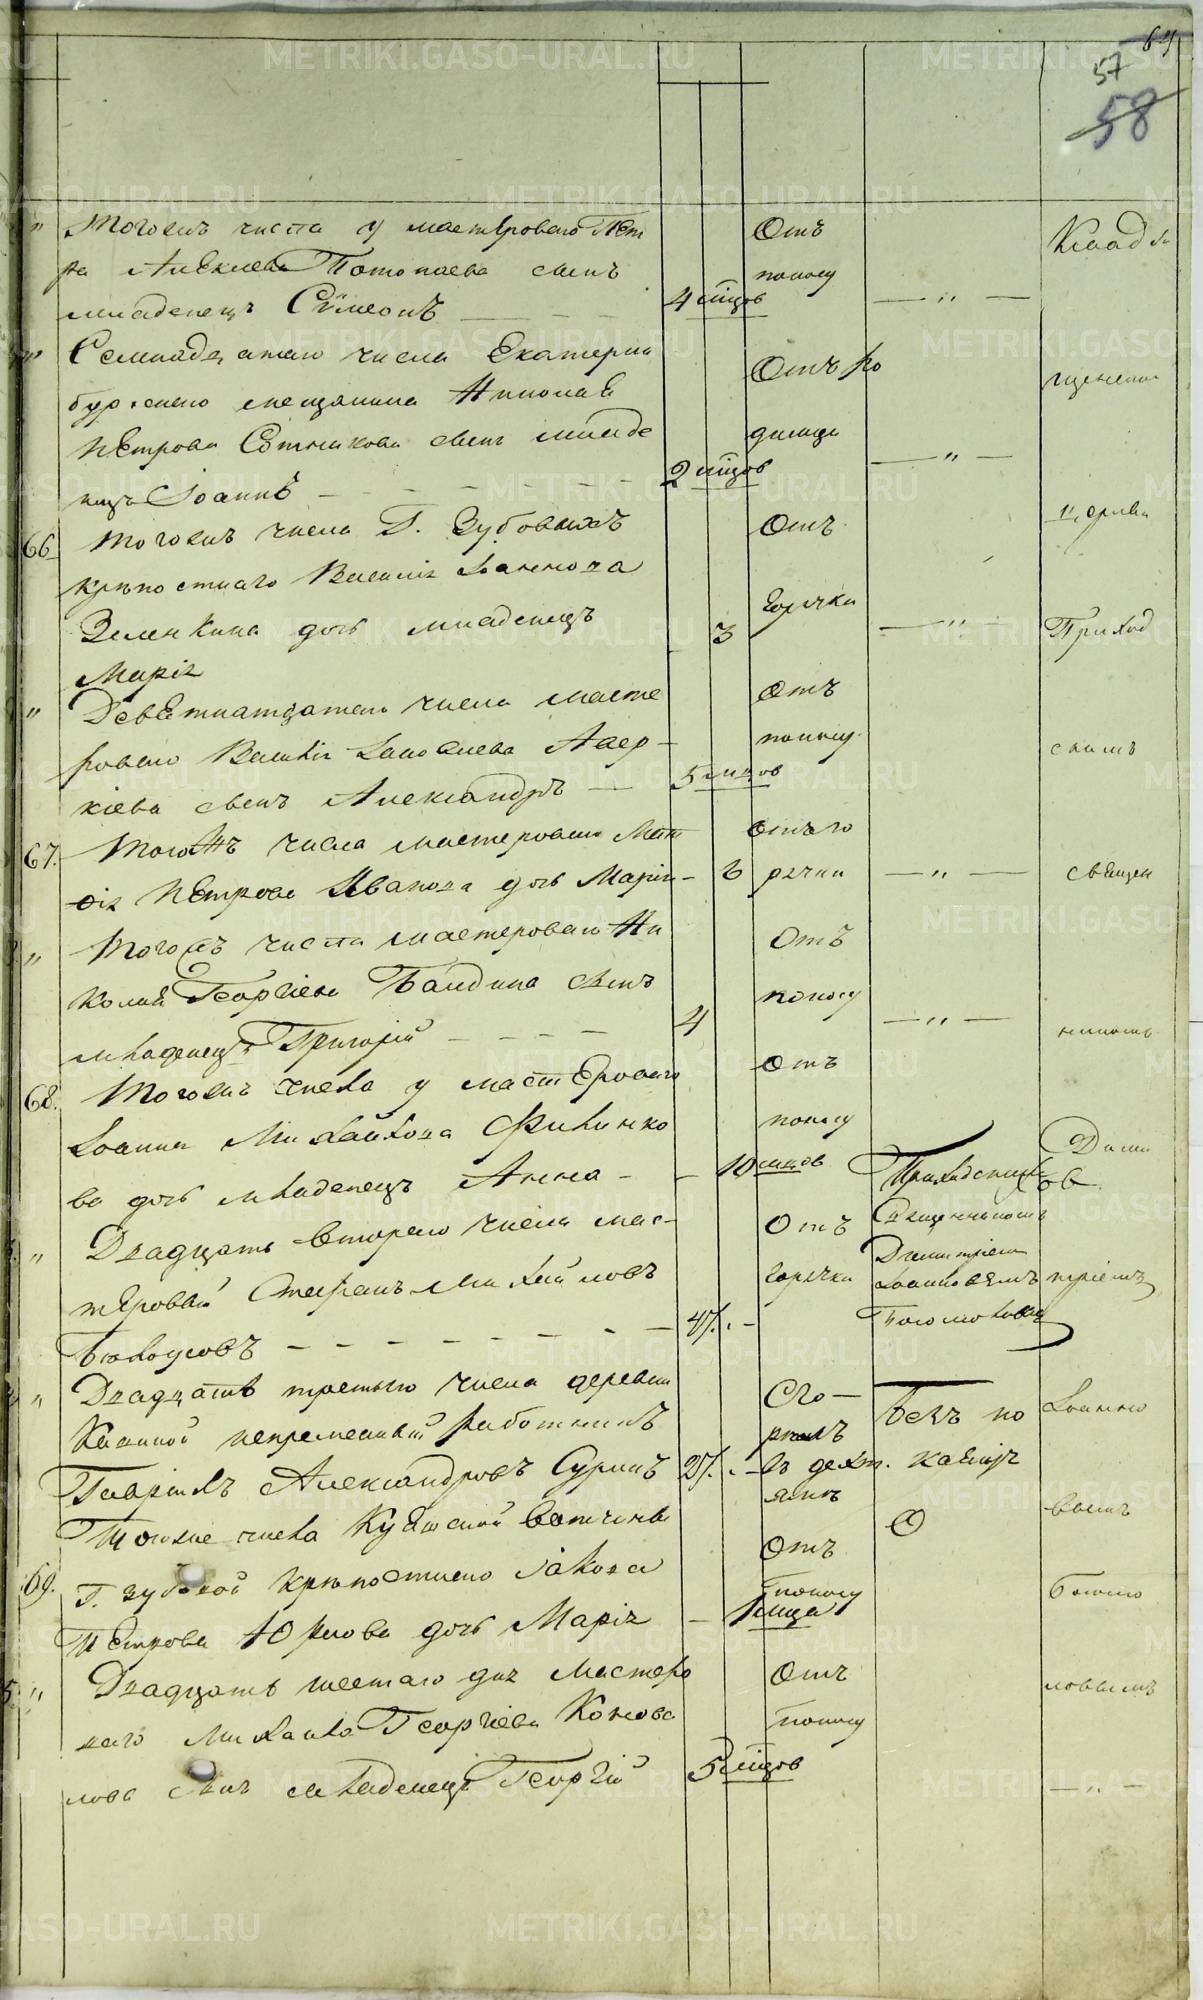 64
57
58
" Тогожъ числа у мастероваго Пет
ра Алексѣева Потопаева сынъ
младенецъ Сѵмеонъ
4 мцов
Отъ
поносу
— " —
Кладби
" Семнадцатаго числа Екатерин
бургскаго мещанина Николая
Петрова Сотникова сынъ младе
нецъ Іоаннъ
2 мцов
Отъ ро
димца
— " —
щенскои
66. Тогожъ числа Г. Зубовыхъ
крѣпостнаго Василія Іаннова
Зеленкина дочь младенецъ
Марія
3
Отъ
горячки
— " —
церкви
Приход
" Девѣтнатцатаго числа масте
роваго Василія Савельева Авер-
кіева сынъ Александръ
5 мцов
Отъ
поносу
скимъ
67. Тогожъ числа мастероваго Мат
ѳія Петрова Иванова дочь Марія
6
Отъ го
рячки
— " —
священ
" Тогожъ числа мастероваго Ни
колая Георгіева Баидина сынъ
младенецъ Григорій
4
Отъ
поносу
— " —
никомъ
68. Тогожъ числа у мастероваго
Іоанна Михайлова Филинко
ва дочь младенецъ Анна
10 мцов
Отъ
поносу
Дими
" Двадцать втораго числа мас-
теровый Стефанъ Михайловъ
Бѣлоусовъ
47.
Отъ
горячки
Приходскимъ
Священникомъ
Димитріемъ
Іоанновымъ
Боголюбовымъ
тріемъ
" Двадцать третьяго числа деревни
Каминой непременный работникъ
Гавріилъ Александровъ Суринъ
27.
Сго-
рѣлъ
въ дехт.
янкѣ
Безъ по
каянія
Іоанно
69. Тогоже числа Куяшской вотчины
Г. Зубовой крѣпостнаго Іакова
Петрова Юркова дочь Марія
1 мца
Отъ
поносу
вымъ
Боголю
" Двадцать шестаго дня Мастеро
ваго Михаила Георгіева Конова
лова сынъ младенецъ Георгій
5 мцов
Отъ
поносу
бовымъ
— " —